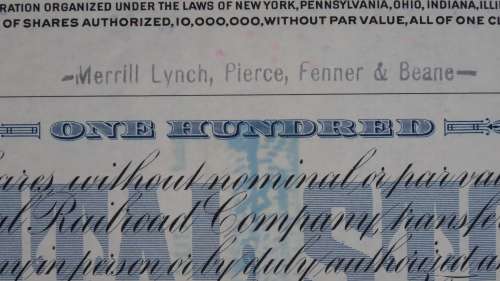 RATION ORGANIZED UNDER THE LAWS OF NEW YORK, PENNSYLVANIA, OHIO, INDIANA, ILLI
OF SHARES AUTHORIZED, 10,000,000, WITHOUT PAR VALUE, ALL OF ONE CL
-Merrill Lynch, Pierce, Fenner & Beane-
ONE HUNDRED
ares, without nominal or par va
al Railroad Company, transfe
ny in person or by duly authorized a
ITAL ST